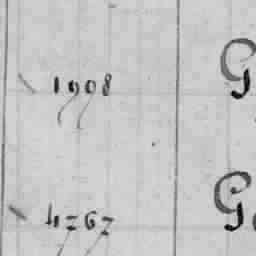 1998 G
4767 G